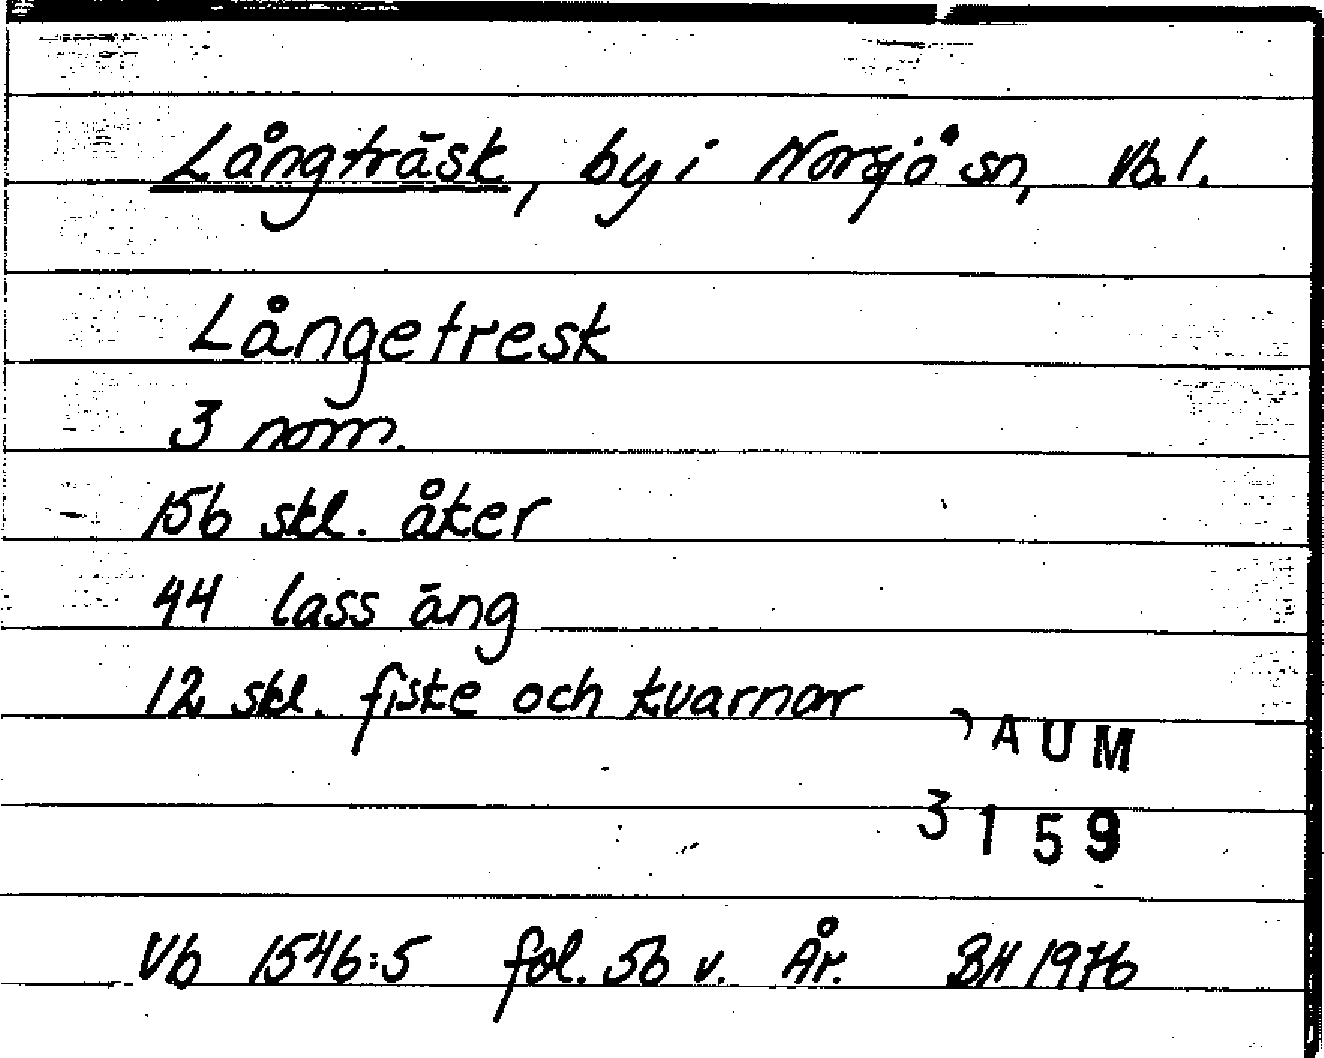 Långträsk, by i Norsjö sn, Vb.l.
Långetresk
3 nom.
156 skl. åker
44 lass äng
12 skl. fiske och kvarnar
DAUM
3159
Vb 1546:5 fol. 56 v. År. BH 1976